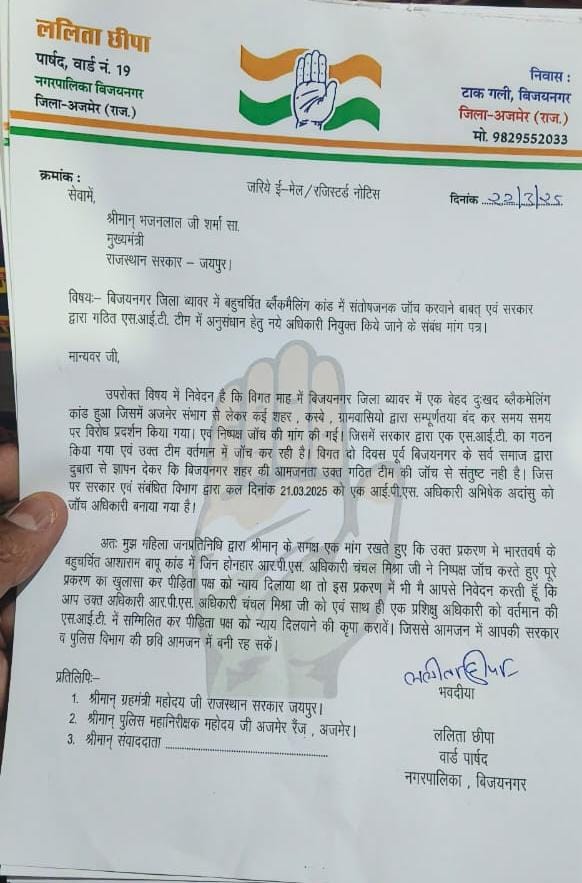 ललिता छीपा
पार्षद, वार्ड नं. 19
नगरपालिका बिजयनगर
जिला-अजमेर (राज.)
निवास :
टाक गली, बिजयनगर
जिला-अजमेर (राज.)
मो. 9829552033
क्रमांक :
जरिये ई-मेल/रजिस्टर्ड नोटिस
दिनांक 22/3/25
सेवामें,
श्रीमान् भजनलाल जी शर्मा सा.
मुख्यमंत्री
राजस्थान सरकार – जयपुर।
विषय:– बिजयनगर जिला ब्यावर में बहुचर्चित ब्लैंकमैलिंग कांड में संतोषजनक जॉंच करवाने बाबत् एवं सरकार
द्वारा गठित एस.आई.टी. टीम में अनुसंधान हेतु नये अधिकारी नियुक्त किये जाने के संबंध मांग पत्र।
मान्यवर जी,
उपरोक्त विषय में निवेदन है कि विगत माह में बिजयनगर जिला ब्यावर में एक बेहद दुःखद ब्लैकमेलिंग
कांड हुआ जिसमें अजमेर संभाग से लेकर कई शहर , कस्बे , ग्रामवासियो द्वारा सम्पूर्णतया बंद कर समय समय
पर विरोध प्रदर्शन किया गया। एवं निष्पक्ष जॉंच की मांग की गई। जिसमें सरकार द्वारा एक एस.आई.टी. का गठन
किया गया एवं उक्त टीम वर्तमान में जॉंच कर रही है। विगत दो दिवस पूर्व बिजयनगर के सर्व समाज द्वारा
दुबारा से ज्ञापन देकर कि बिजयनगर शहर की आमजनता उक्त गठित टीम की जॉंच से संतुष्ट नही है। जिस
पर सरकार एवं संबंधित विभाग द्वारा कल दिनांक 21.03.2025 को एक आई.पी.एस. अधिकारी अभिषेक अदांसु को
जॉंच अधिकारी बनाया गया है।
अतः मुझ महिला जनप्रतिनिधि द्वारा श्रीमान् के समक्ष एक मांग रखते हुए कि उक्त प्रकरण मे भारतवर्ष के
बहुचर्चित आशाराम बापू कांड में जिंन होनहार आर.पी.एस. अधिकारी चंचल मिश्रा जी ने निष्पक्ष जॉंच करते हुए पूरे
प्रकरण का खुलासा कर पीड़िता पक्ष को न्याय दिलाया था तो इस प्रकरण में भी मै आपसे निवेदन करती हूँ कि
आप उक्त अधिकारी आर.पी.एस. अधिकारी चंचल मिश्रा जी को एवं साथ ही एक प्रशिक्षु अधिकारी को वर्तमान की
एस.आई.टी. में सम्मिलित कर पीड़िता पक्ष को न्याय दिलवाने की कृपा करावें। जिससे आमजन में आपकी सरकार
व पुलिस विभाग की छवि आमजन में बनी रह सकें।
ललिता छिपा
भवदीया
प्रतिलिपि:–
1. श्रीमान् ग्रहमंत्री महोदय जी राजस्थान सरकार जयपुर।
2. श्रीमान् पुलिस महानिरीक्षक महोदय जी अजमेर रैंज , अजमेर।
3. श्रीमान् संवाददाता
ललिता छीपा
वार्ड पार्षद
नगरपालिका , बिजयनगर